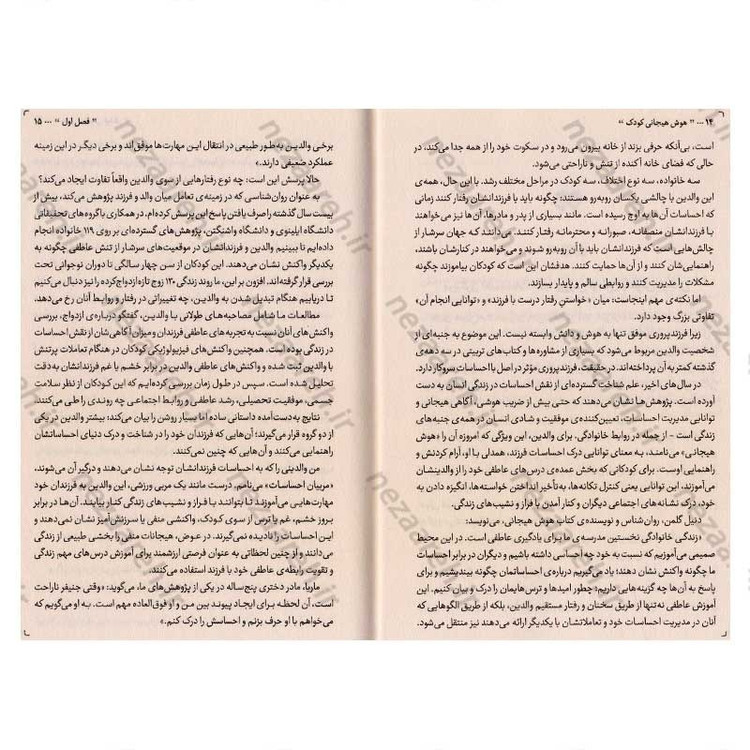 ۱۴ ... " هوش هیجانی کودک "
است، بی‌آنکه حرفی بزند از خانه بیرون می‌رود و در سکوت خود را از همه جدا می‌کند، در
حالی که فضای خانه آکنده از تنش و ناراحتی می‌شود.
سه خانواده، سه نوع اختلاف، سه کودک در مراحل مختلف رشد. با این حال، همه‌ی
این والدین با چالشی یکسان روبه‌رو هستند؛ چگونه باید با فرزندانشان رفتار کنند زمانی
که احساسات آن‌ها به اوج رسیده است. مانند بسیاری از پدر و مادرها، آن‌ها نیز می‌خواهند
با فرزندانشان منصفانه، صبورانه و محترمانه رفتار کنند. می‌دانند که جهان سرشار از
چالش‌هایی است که فرزندانشان باید با آن روبه‌رو شوند و می‌خواهند در کنارشان باشند،
راهنمایی‌شان کنند و از آن‌ها حمایت کنند. هدفشان این است که کودکان بیاموزند چگونه
مشکلات را مدیریت کنند و روابطی سالم و پایدار بسازند.
اما نکته‌ی مهم اینجاست: میان «خواستنِ رفتار درست با فرزند» و «توانایی انجام آن»
تفاوتی بزرگ وجود دارد.
زیرا فرزندپروری موفق تنها به هوش و دانش وابسته نیست. این موضوع به جنبه‌ای از
شخصیت والدین مربوط می‌شود که بسیاری از مشاوره‌ها و کتاب‌های تربیتی در سه دهه‌ی
گذشته کمتر به آن پرداخته‌اند. در حقیقت، فرزندپروری مؤثر در اصل با احساسات سروکار دارد.
در سال‌های اخیر، علم شناخت گسترده‌ای از نقش احساسات در زندگی انسان به دست
آورده است. پژوهش‌ها نشان می‌دهند که حتی بیش از ضریب هوشی، آگاهی هیجانی و
توانایی مدیریت احساسات، تعیین‌کننده‌ی موفقیت و شادی انسان در همه‌ی جنبه‌های
زندگی است - از جمله در روابط خانوادگی. برای والدین، این ویژگی که امروزه آن را «هوش
هیجانی» می‌نامند، به معنای توانایی درک احساسات فرزند، همدلی با او، آرام کردنش و
راهنمایی اوست. برای کودکانی که بخش عمده‌ی درس‌های عاطفی خود را از والدینشان
می‌آموزند، این توانایی یعنی کنترل تکانه‌ها، به‌تأخیر انداختن خواسته‌ها، انگیزه دادن به
خود، درک نشانه‌های اجتماعی دیگران و کنار آمدن با فراز و نشیب‌های زندگی.
دنیل گلمن، روان‌شناس و نویسنده‌ی کتاب هوش هیجانی، می‌نویسد:
«زندگی خانوادگی نخستین مدرسه‌ی ما برای یادگیری عاطفی است. در این محیط
صمیمی می‌آموزیم که نسبت به خود چه احساسی داشته باشیم و دیگران در برابر احساسات
ما چگونه واکنش نشان دهند؛ یاد می‌گیریم درباره‌ی احساساتمان چگونه بیندیشیم و برای
پاسخ به آن‌ها چه گزینه‌هایی داریم؛ چطور امیدها و ترس‌هایمان را درک و بیان کنیم. این
آموزش عاطفی نه‌تنها از طریق سخنان و رفتار مستقیم والدین، بلکه از طریق الگوهایی که
آنان در مدیریت احساسات خود و تعاملاتشان با یکدیگر ارائه می‌دهند نیز منتقل می‌شود.
" فصل اول " ... ۱۵
برخی والدین به‌طور طبیعی در انتقال این مهارت‌ها موفق‌اند و برخی دیگر در این زمینه
عملکرد ضعیفی دارند.»
حالا پرسش این است: چه نوع رفتارهایی از سوی والدین واقعاً تفاوت ایجاد می‌کند؟
به عنوان روان‌شناسی که در زمینه‌ی تعامل میان والد و فرزند پژوهش می‌کند،
بیست سال گذشته را صرف یافتن پاسخ این پرسش کرده‌ام. در همکاری با گروه‌های تحقیقاتی
دانشگاه ایلینوی و دانشگاه واشنگتن، پژوهش‌های گسترده‌ای بر روی ۱۱۹ خانواده انجام
داده‌ایم تا ببینیم والدین و فرزندانشان در موقعیت‌های سرشار از تنش عاطفی چگونه به
یکدیگر واکنش نشان می‌دهند. این کودکان از سن چهار سالگی تا دوران نوجوانی تحت
بررسی قرار گرفته‌اند. افزون بر این، ما روند زندگی ۱۳۰ زوج تازه‌ازدواج‌کرده را نیز دنبال می‌کنیم
تا دریابیم هنگام تبدیل شدن به والدین، چه تغییراتی در رفتار و روابط آنان رخ می‌دهد.
مطالعات ما شامل مصاحبه‌های طولانی با والدین، گفتگو درباره‌ی ازدواج، بررسی
واکنش‌های آنان نسبت به تجربه‌های عاطفی فرزندان و میزان آگاهی‌شان از نقش احساسات
در زندگی بوده است. همچنین واکنش‌های فیزیولوژیکی کودکان در هنگام تعاملات پرتنش
با والدین ثبت شده و واکنش‌های عاطفی والدین در برابر خشم یا غم فرزندانشان به‌دقت
تحلیل شده است. سپس در طول زمان بررسی کرده‌ایم که این کودکان از نظر سلامت
جسمی، موفقیت تحصیلی، رشد عاطفی و روابط اجتماعی چه روندی را طی می‌کنند.
نتایج به‌دست‌آمده داستانی ساده اما بسیار روشن را بیان می‌کند: بیشتر والدین در یکی
از دو گروه قرار می‌گیرند؛ آن‌هایی که فرزندان خود را در شناخت و درک دنیای احساساتشان
راهنمایی می‌کنند و آن‌هایی که چنین نمی‌کنند.
من والدینی را که به احساسات فرزندانشان توجه نشان می‌دهند و درگیر آن می‌شوند،
«مربیان احساسات» می‌نامم. درست مانند یک مربی ورزشی، این والدین به فرزندان خود
مهارت‌هایی می‌آموزند تا بتوانند با فراز و نشیب‌های زندگی کنار بیایند. آن‌ها در برابر
بروز خشم، غم یا ترس از سوی کودک، واکنشی منفی یا سرزنش‌آمیز نشان نمی‌دهند و
این احساسات را نادیده نمی‌گیرند. در عوض، هیجانات منفی را بخشی طبیعی از زندگی
می‌دانند و از چنین لحظاتی به عنوان فرصتی ارزشمند برای آموزش درس‌های مهم زندگی
و تقویت رابطه‌ی عاطفی خود با فرزند استفاده می‌کنند.
ماریا، مادر دختری پنج‌ساله در یکی از پژوهش‌های ما، می‌گوید: «وقتی جنیفر ناراحت
است، آن لحظه برای ایجاد پیوند بین من و او فوق‌العاده مهم است. به او می‌گویم که
می‌خواهم با او حرف بزنم و احساسش را درک کنم.»
nezaareh.ir